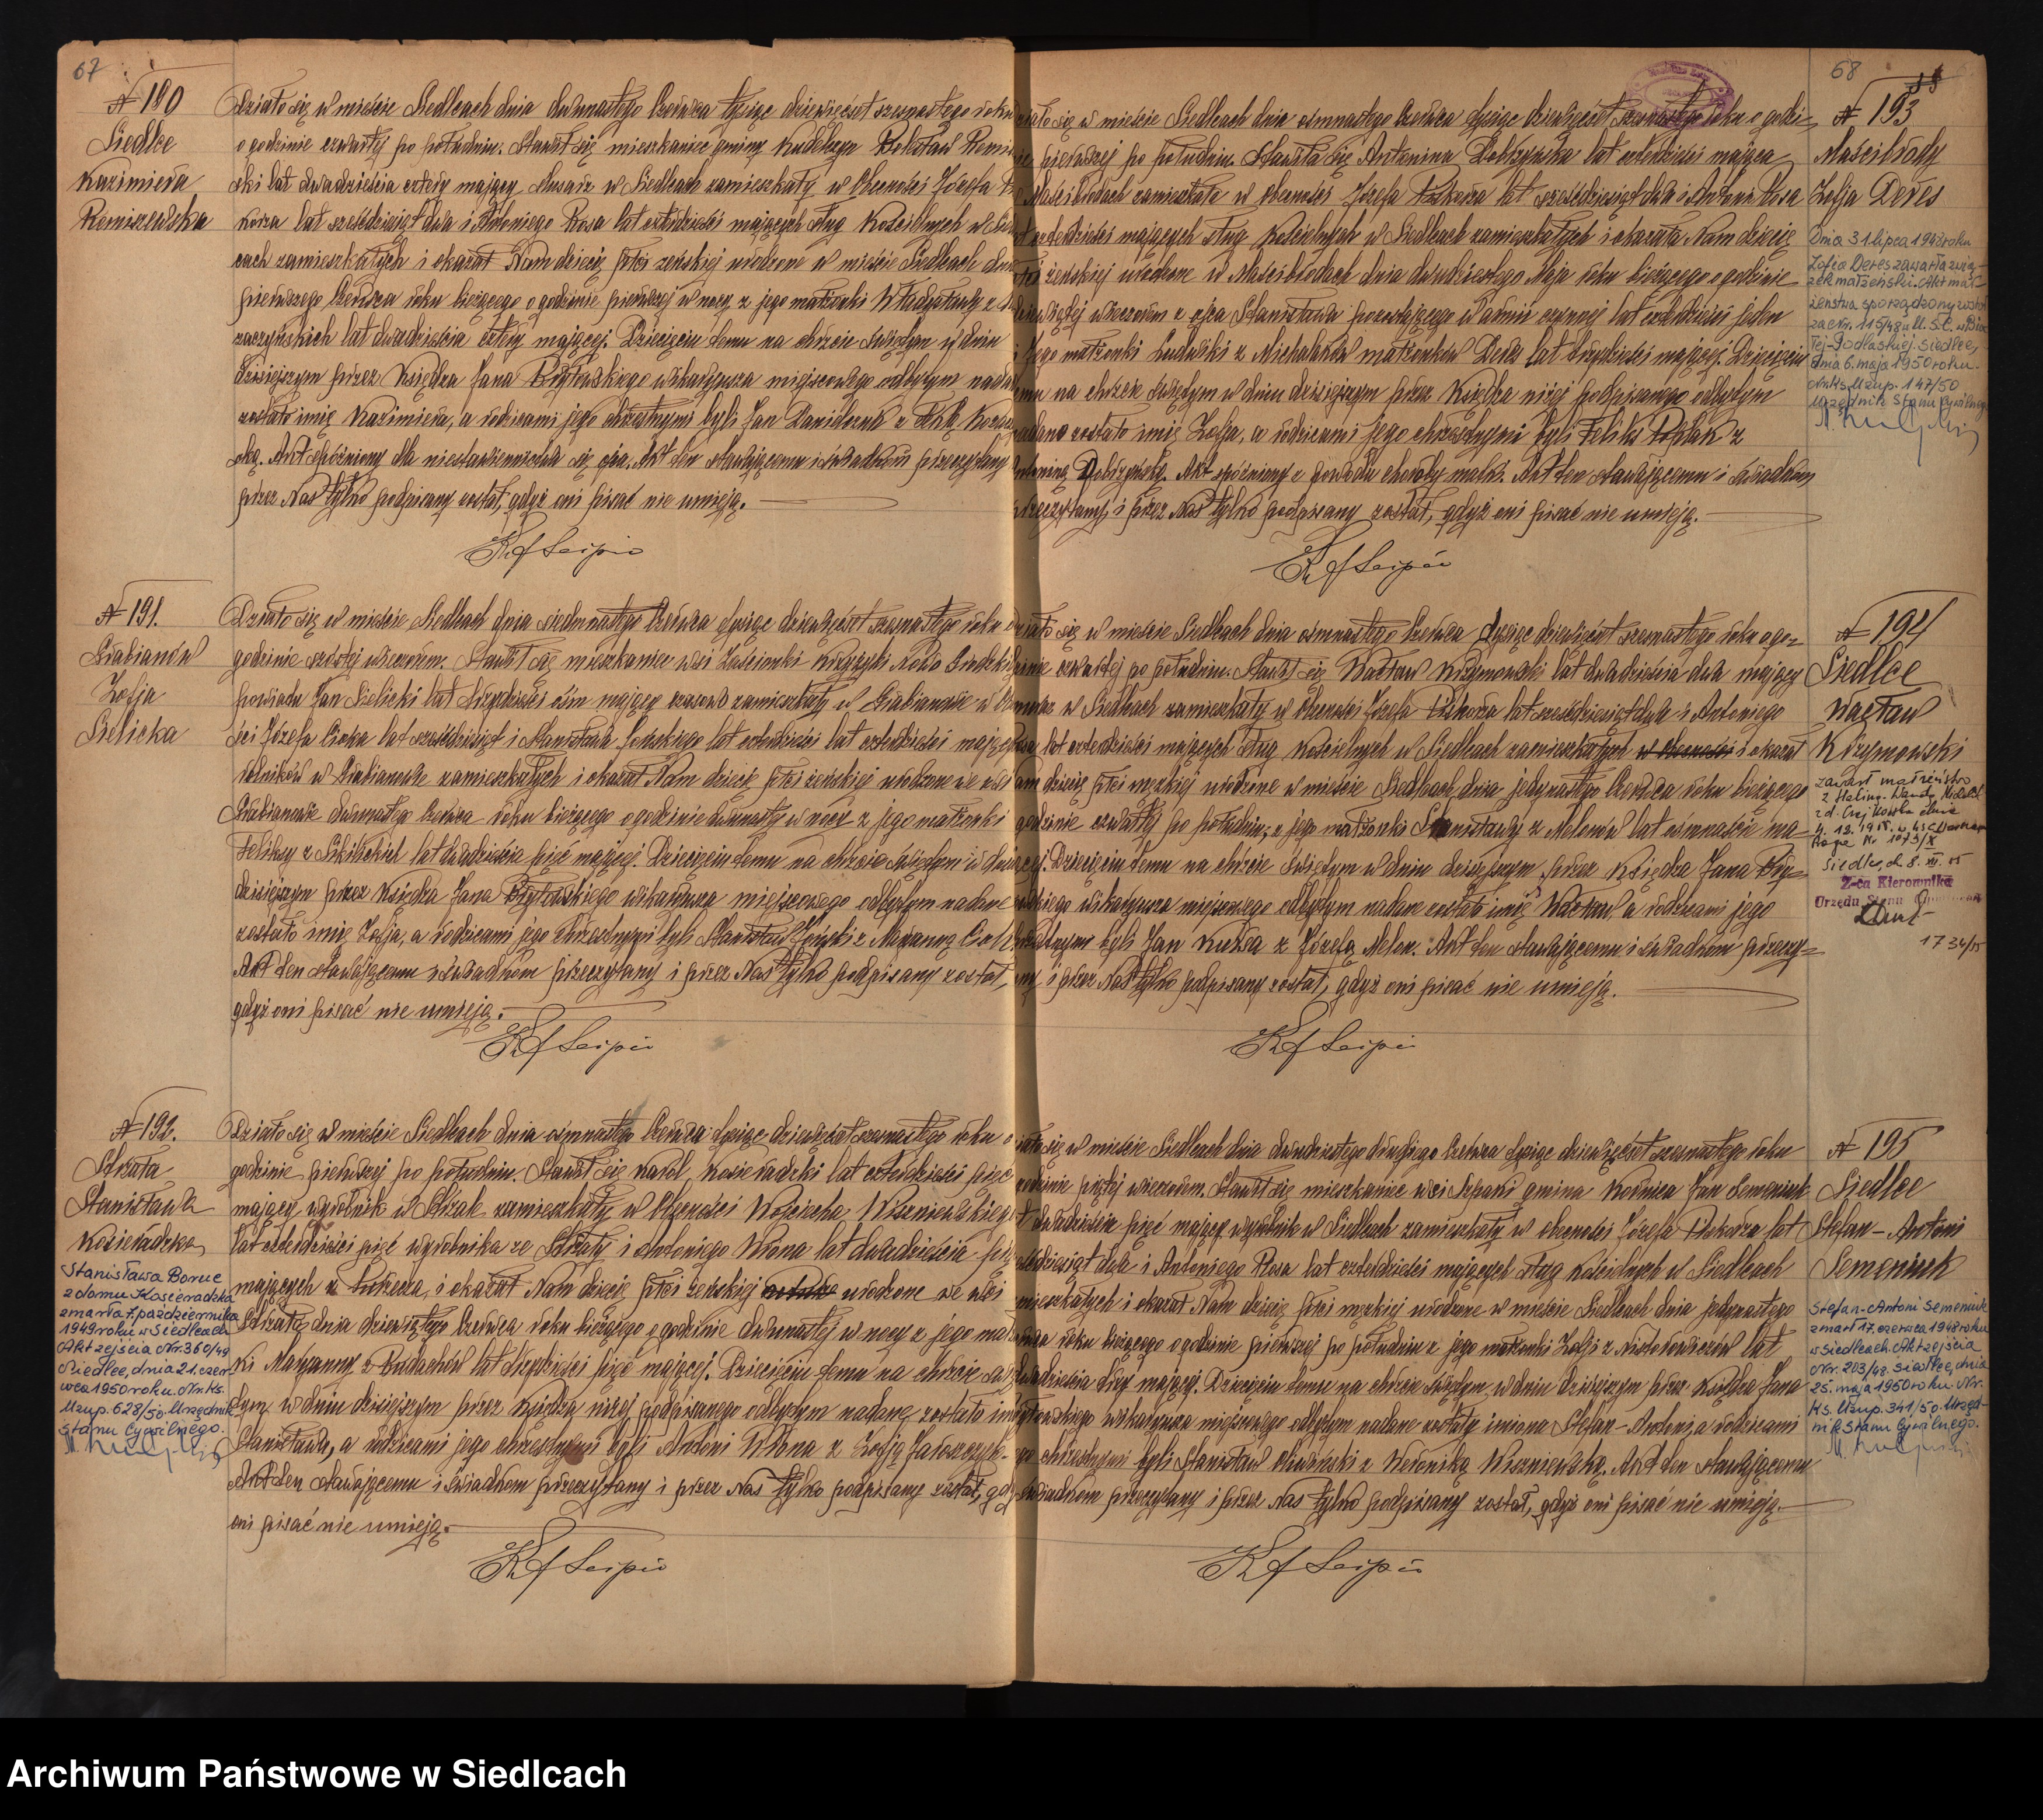 67
№ 190
Siedlce
Kazimiera
Remiszewska
Działo się w mieście Siedlcach dnia dwunastego Czerwca tysiąc dziewięćset szesnastego roku
o godzinie czwartej po południu. Stawił się mieszkaniec gminy Kudelczyn Bolesław Remi
ski lat dwadzieścia cztery mający ślusarz w Siedlcach zamieszkały w obecności Józefa
korza lat sześćdziesiąt dwa i Antoniego Rosa lat czterdzieści mających sług kościelnych w
cach zamieszkałych i okazał Nam dziecię płci żeńskiej urodzone w mieście Siedlcach dnia
pierwszego Czerwca roku bieżącego o godzinie pierwszej w nocy z jego małżonki Władysławy z
lat dwadzieścia cztery mającej. Dziecięciu temu na chrzcie świętym w dniu
dzisiejszym przez Księdza Jana Brytowskiego wikaryusza miejscowego odbytym nada
zostało imię Kazimiera, a rodzicami jego chrzestnymi byli Jan Daniluk z
ską. Akt opóźniony dla niestawiennictwa się ojca. Akt ten stawającemu i świadkom przeczytany
przez Nas tylko podpisany został, gdyż oni pisać nie umieją.
№ 191.
Grabianów
Zofja
Sielicka
Działo się w mieście Siedlcach dnia siedmnastego Czerwca tysiąc dziewięćset szesnastego roku o
godzinie szóstej wieczorem. Stawił się mieszkaniec wsi
powiatu Jan Sielicki lat trzydzieści ośm mający czasowo zamieszkały w Grabianowie w
ści Józefa Cioka lat sześćdziesiąt i Stanisława lat czterdzieści lat czterdzieści mający
rolników w Grabianowie zamieszkałych i okazał Nam dziecię płci żeńskiej urodzone we wsi
Grabianowie dwunastego Czerwca roku bieżącego o godzinie dwunastej w nocy z jego małżonki
Feliksy z lat dwadzieścia pięć mającej. Dziecięciu temu na chrzcie świętym w dniu
dzisiejszym przez Księdza Jana Brytowskiego wikaryusza miejscowego odbytym nadane
zostało imię Zofja, a rodzicami jego chrzestnymi byli Stanisław z Maryanną
Akt ten stawającemu i świadkom przeczytany i przez Nas tylko podpisany został,
gdyż oni pisać nie umieją.
№ 192.
Strzała
Stanisława
Kosieradzka
Stanisława Boruc
z domu Kosieradzka
zmarła 7 października
1949 roku w Siedlcach
Akt zejścia Nr. 360/49
Siedlce, dnia 21. czer-
wca 1950 roku. Nr. ks.
Uzup. 628/50. Urzędnik
Stanu Cywilnego.
Działo się w mieście Siedlcach dnia ośmnastego Czerwca tysiąc dziewięćset szesnastego roku o
godzinie pierwszej po południu. Stawił się Karol Kosieradzki lat czterdzieści pięć
mający wyrobnik w Strzale zamieszkały w obecności Wojciecha Wiszniewskiego
lat czterdzieści pięć wyrobnika ze Strzały i Antoniego Wrona lat dwadzieścia
mających i okazał Nam dziecię płci żeńskiej urodzone we wsi
Strzale dnia dziewiątego Czerwca roku bieżącego o godzinie dwunastej w nocy z jego mał
ki Maryanny z lat trzydzieści pięć mającej. Dziecięciu temu na chrzcie świę
tym w dniu dzisiejszym przez Księdza niżej podpisanego odbytym nadane zostało imię
Stanisława, a rodzicami jego chrzestnymi byli Antoni Wrona z Zofją
Akt ten stawającemu i świadkom przeczytany i przez Nas tylko podpisany został, gdyż
oni pisać nie umieją.
68
№ 193
Maścibrody
Zofja Deres
Dnia 31 lipca 1948 roku
Zofia Deres zawarła zwią-
zek małżeński. Akt mał-
żeństwa sporządzony został
za Nr. 115/48 w U.S.C. w Bia-
łej-Podlaskiej. Siedlce,
dnia 6. maja 1950 roku.
Nr. ks. Uzup. 147/50
Urzędnik Stanu Cywilnego
iało się w mieście Siedlcach dnia ośmnastego Czerwca tysiąc dziewięćset szesnastego roku o godzi-
nie pierwszej po południu. Stawiła się Antonina Dobrzyńska lat czterdzieści mająca
w Maścibrodach zamieszkała w obecności Józefa Piskorza lat sześćdziesiąt dwa i Antoni Rosa
lat czterdzieści mających sług kościelnych w Siedlcach zamieszkałych i okazała Nam dziecię
płci żeńskiej urodzone w Maścibrodach dnia dwudziestego Maja roku bieżącego o godzinie
dziewiątej wieczorem z ojca Stanisława pozostającego w armii czynnej lat czterdzieści jeden
i Jego małżonki Ludwiki z Michalaków małżonków Deres lat trzydzieści mającej. Dziecięciu
temu na chrzcie świętym w dniu dzisiejszym przez Księdza niżej podpisanego odbytym
nadano zostało imię Zofja, a rodzicami Jego chrzestnymi byli Feliks Polak z
Antoniną Dobrzyńską. Akt spóźniony z powodu choroby matki. Akt ten stawającemu i świadkom
przeczytany i przez Nas tylko podpisany został, gdyż oni pisać nie umieją.
№ 194
Siedlce
Wacław
Krzymowski
zawarł małżeństwo
Siedlce, d. 8. XII. 55
Z-ca Kierownika
Urzędu Stanu Cywilnego
1734/55
iało się w mieście Siedlcach dnia ośmnastego Czerwca tysiąc dziewięćset szesnastego roku o go-
dzinie czwartej po południu. Stawił się Wacław Krzymowski lat dwadzieścia dwa mający
w Siedlcach zamieszkały w obecności Józefa Piskorza lat sześćdziesiąt dwa i Antoniego
Rosa lat czterdzieści mających sług kościelnych w Siedlcach zamieszkałych w obecności i okazał
Nam dziecię płci męzkiej urodzone w mieście Siedlcach dnia jedynastego Czerwca roku bieżącego
godzinie czwartej po południu, z jego małżonki Stanisławy z Melonów lat ośmnaście ma-
jącej. Dziecięciu temu na chrzcie świętym w dniu dzisiejszym przez Księdza Jana Bry-
towskiego wikaryusza miejscowego odbytym nadane zostało imię Wacław, a rodzicami jego
chrzestnymi byli Jan Kukwa z Józefą Melon. Akt ten stawającemu i świadkom przeczy-
tany i przez Nas tylko podpisany został, gdyż oni pisać nie umieją.
№ 195
Siedlce
Stefan-Antoni
Semeniuk
Stefan-Antoni Semeniuk
zmarł 17. czerwca 1948 roku
w Siedlcach. Akt zejścia
Nr. 203/48. Siedlce, dnia
25. maja 1950 roku. Nr.
ks. Uzup. 341/50. Urzęd-
nik Stanu Cywilnego.
iało się w mieście Siedlcach dnia dwudziestego drugiego Czerwca tysiąc dziewięćset szesnastego roku
godzinie piątej wieczorem. Stawił się mieszkaniec wsi Szpaki gmina Kornica Jan Semeniuk
lat dwadzieścia pięć mający wyrobnik w Siedlcach zamieszkały w obecności Józefa Piskorza lat
sześćdziesiąt dwa i Antoniego Rosa lat czterdzieści mających sług kościelnych w Siedlcach
mieszkałych i okazał Nam dziecię płci męzkiej urodzone w mieście Siedlcach dnia jedynastego
Czerwca roku bieżącego o godzinie pierwszej po południu z jego małżonki Zofji z lat
dwadzieścia trzy mającej. Dziecięciu temu na chrzcie świętym w dniu dzisiejszym przez Księdza Jana
Brytowskiego wikaryusza miejscowego odbytym nadane zostały imiona Stefan-Antoni, a rodzicami
jego chrzestnymi byli Stanisław Oliwiński z Weroniką Wiszniewską. Akt ten stawającemu
świadkom przeczytany i przez Nas tylko podpisany został, gdyż oni pisać nie umieją.
Archiwum Państwowe w Siedlcach